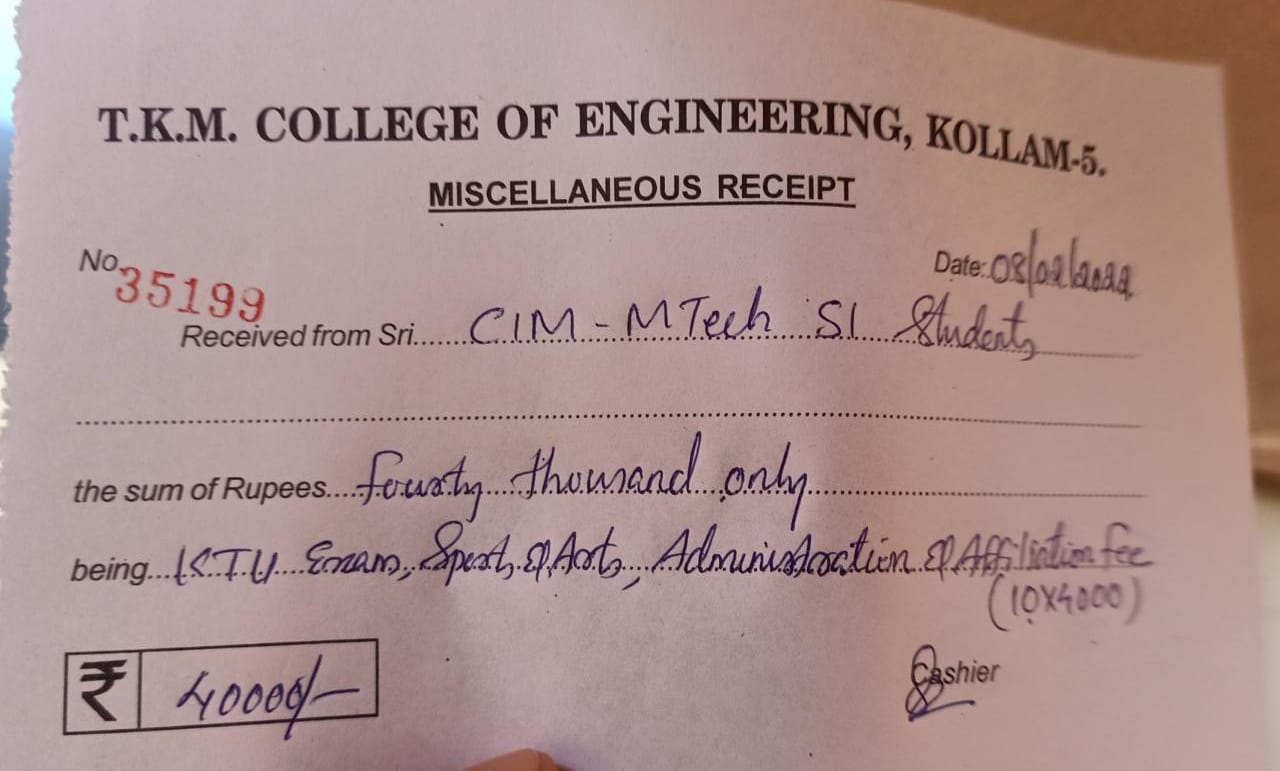 T.K.M. COLLEGE OF ENGINEERING, KOLLAM-5.
MISCELLANEOUS RECEIPT
No. 35199 Date: 08/02/2022
Received from Sri....... CIM - MTech S1 Students
the sum of Rupees.... fourty thousand only
being... KTU Exam, Sports & Arts, Administration & Affiliation fee
(10x4000)
₹ 40000/-
Cashier